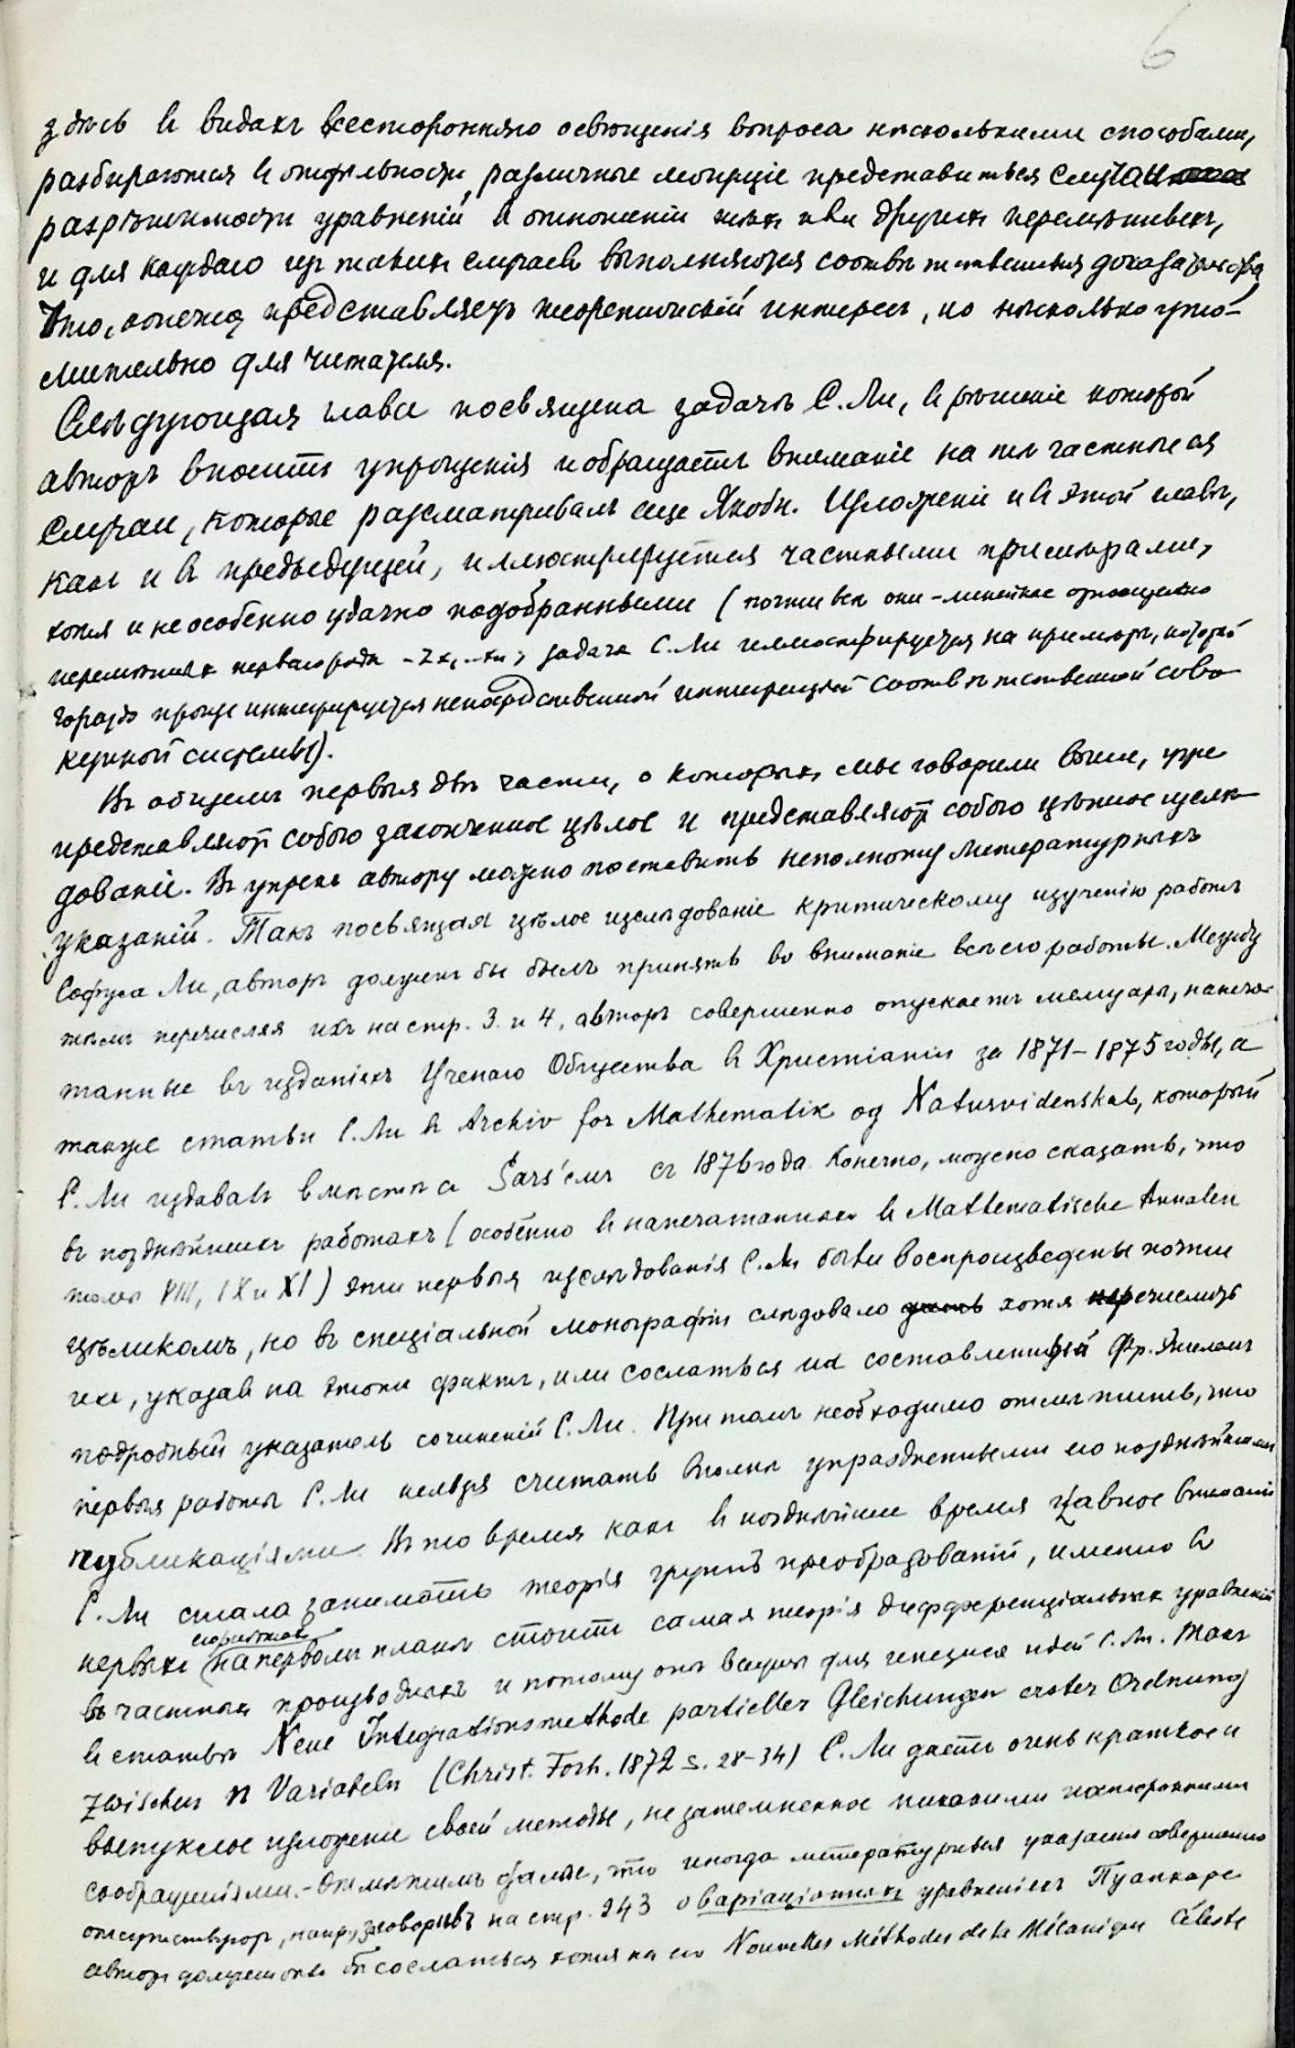 6
здѣсь въ видахъ всесторонняго освѣщенія вопроса нѣсколькими способами,
разбираются въ отдѣльности различные могущіе представиться случаи
разрѣшимости уравненій въ отношеніи тѣхъ или другихъ перемѣнныхъ,
и для каждаго изъ такихъ случаевъ выполняются соотвѣтственныя доказательства
Это, конечно, представляетъ теоретическій интересъ, но нѣсколько уто-
мительно для читателя.
Слѣдующая глава посвящена задачѣ С. Ли, въ рѣшеніе которой
авторъ вноситъ упрощенія и обращаетъ вниманіе на тѣ частные ея
случаи, которые разсматривалъ еще Якоби. Изложеніе и въ этой главѣ,
какъ и въ предыдущей, иллюстрируется частными примѣрами,
хотя и не особенно удачно подобранными (почти всѣ они – линейные относительно
перемѣнныхъ перваго рода задача С. Ли иллюстрируется на примѣрѣ, который
гораздо проще интегрируется непосредственной интеграціей соотвѣтственной сово-
купной системы).
Въ общемъ первыя двѣ части, о которыхъ мы говорили выше, уже
представляютъ собою законченное цѣлое и представляютъ собою цѣнное изслѣ-
дованіе. Въ упрекъ автору можно поставить неполноту литературныхъ
указаній. Такъ посвящая цѣлое изслѣдованіе критическому изученію работъ
Софуса Ли, авторъ долженъ бы былъ принять во вниманіе всѣ его работы. Между
тѣмъ перечисляя ихъ на стр. 3 и 4, авторъ совершенно опускаетъ мемуары, напеча-
танные въ изданіяхъ Ученаго Общества въ Христіаніи за 1871–1875 годы, а
также статьи С. Ли въ Archiv for Mathematik og Naturvidenskab, который
С. Ли издавалъ вмѣстѣ съ Sars'емъ съ 1876 года. Конечно, можно сказать, что
въ позднѣйшихъ работахъ (особенно въ напечатанныхъ въ Mathematische Annalen
томы VIII, IX и XI) эти первыя изслѣдованія С. Ли были воспроизведены почти
цѣликомъ, но въ спеціальной монографіи слѣдовало хотя перечислить
ихъ, указавъ на этотъ фактъ, или сослаться на составленный Фр. Энгелемъ
подробный указатель сочиненій С. Ли. При томъ необходимо отмѣтить, что
первыя работы С. Ли нельзя считать вполнѣ упраздненными его позднѣйшими
публикаціями. Въ то время какъ въ позднѣйшее время главное вниманіе
С. Ли стала занимать теорія группъ преобразованій, именно въ
первыхъ его работахъ на первомъ планѣ стоитъ самая теорія дифференціальныхъ уравненій
въ частныхъ производныхъ и потому онѣ важны для генезиса идей С. Ли. Такъ
въ статьѣ Neue Integrationsmethode partieller Gleichungen erster Ordnung
zwischen n Variabeln (Christ. Forh. 1872 s. 28–34) С. Ли даетъ очень краткое и
выпуклое изложеніе своей методы, не затемненное никакими посторонними
соображеніями. – Отмѣтимъ далѣе, что иногда литературныя указанія совершенно
отсутствуютъ, напр., заговоривъ на стр. 243 о варіаціонныхъ уравненіяхъ Пуанкаре
авторъ долженъ бы сослаться хотя на его Nouvelles Méthodes de la Mécanique Céleste